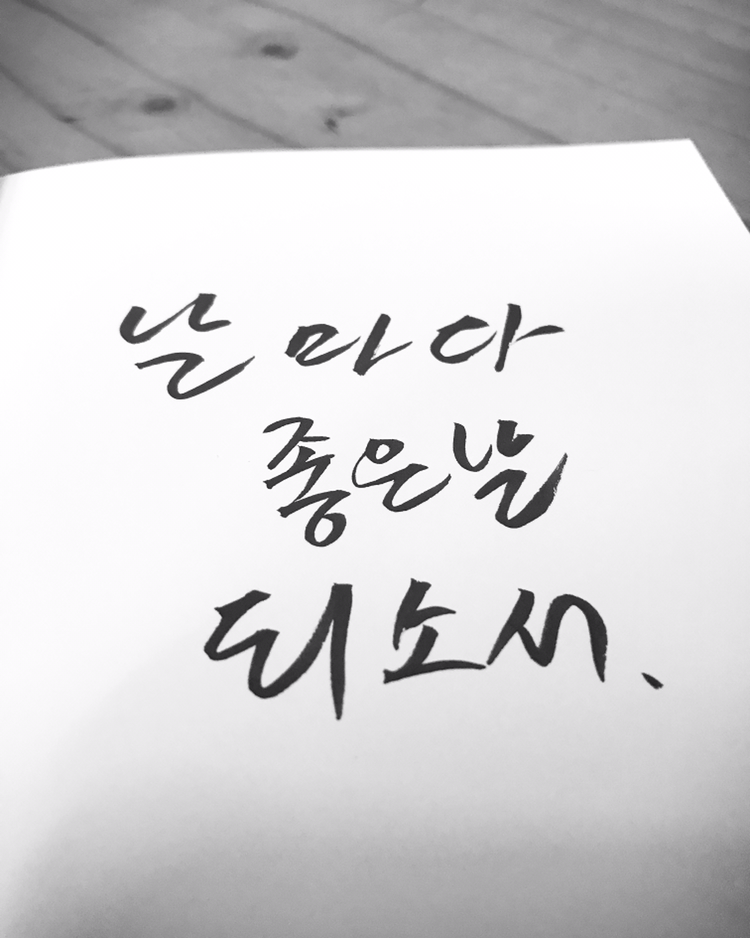 날마다
좋은날
되소서.